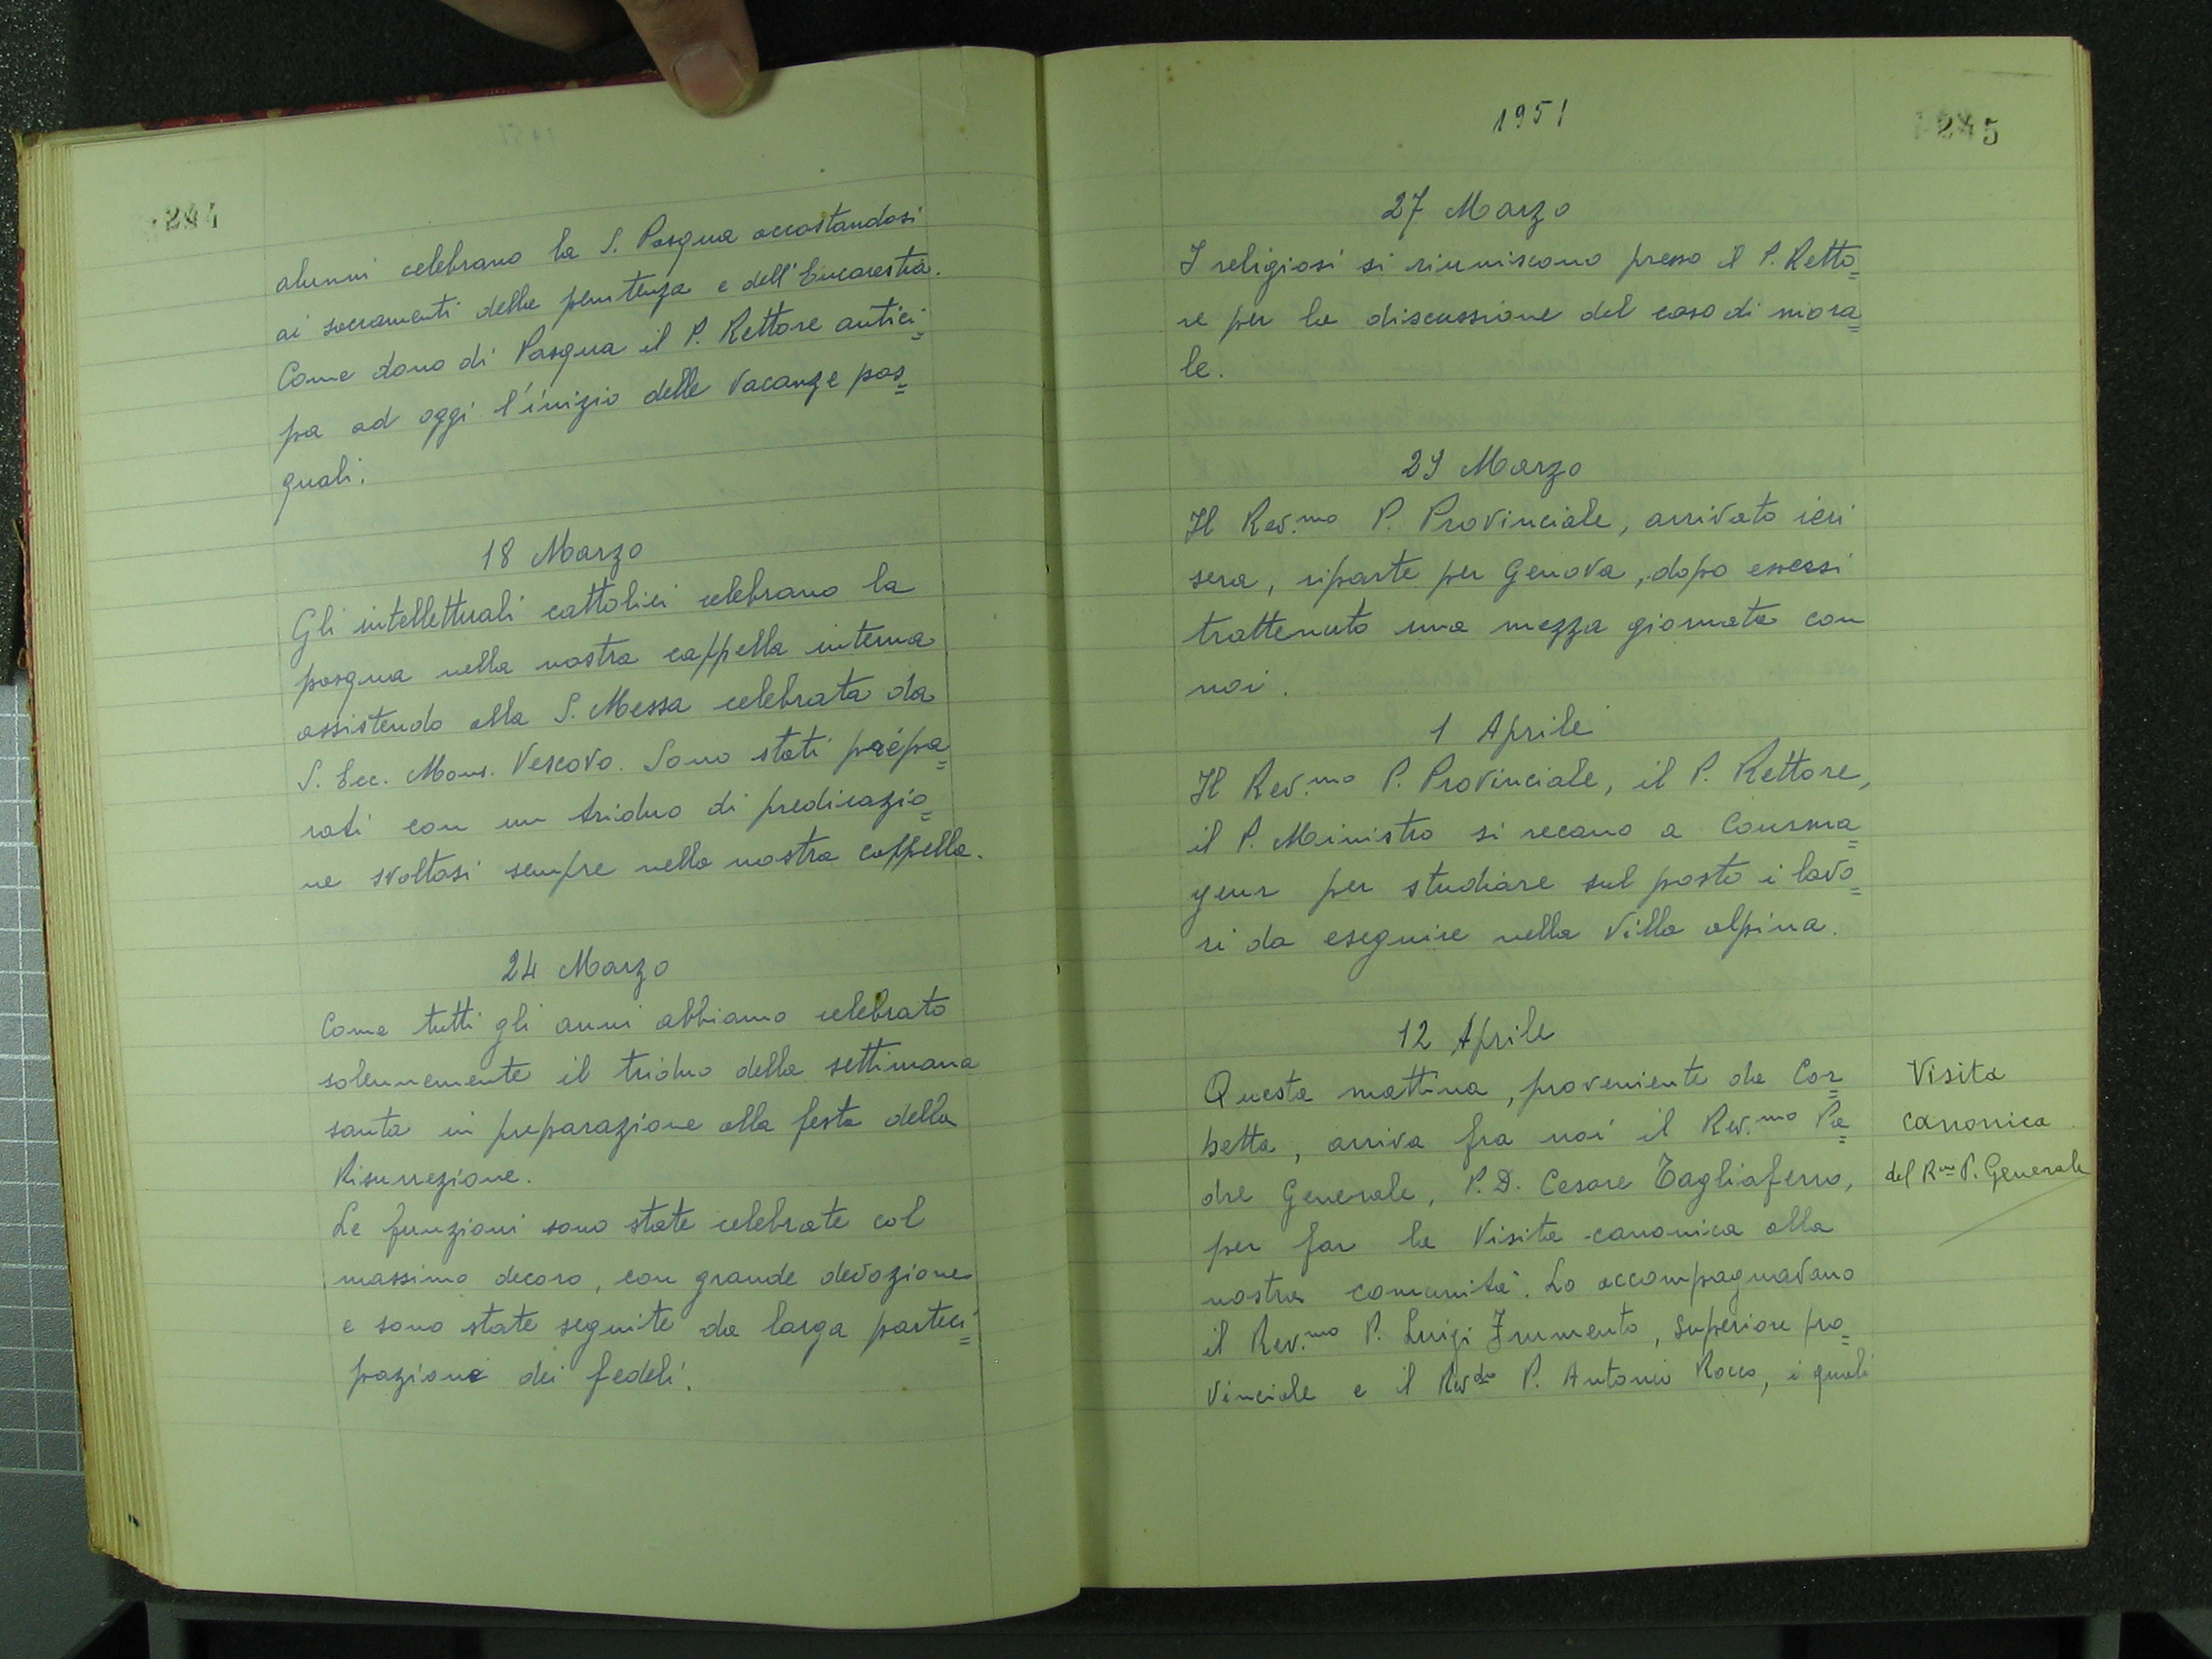 244
alunni celebrano la S. Pasqua accostandosi
ai sacramenti della penitenza e dell'Eucarestia.
Come dono di Pasqua il P. Rettore antici=
pa ad oggi l'inizio delle vacanze pas=
quali.
18 Marzo
Gli intellettuali cattolici celebrano la
pasqua nella nostra cappella interna
assistendo alla S. Messa celebrata da
S. Ecc. Mons. Vescovo. Sono stati prepa=
rati con un triduo di predicazio=
ne svoltosi sempre nella nostra cappella.
24 Marzo
Come tutti gli anni abbiamo celebrato
solennemente il triduo della settimana
santa in preparazione alla festa della
Risurrezione.
Le funzioni sono state celebrate col
massimo decoro, con grande devozione
e sono state seguite da larga parteci=
pazione dei fedeli.
1951
245
27 Marzo
I religiosi si riuniscono presso il P. Retto=
re per la discussione del caso di mora=
le.
29 Marzo
Il Rev.mo P. Provinciale, arrivato ieri
sera, riparte per Genova, dopo essersi
trattenuto una mezza giornata con
noi.
1 Aprile
Il Rev.mo P. Provinciale, il P. Rettore,
il P. Ministro si recano a Courma=
yeur per studiare sul posto i lavo=
ri da eseguire nella Villa alpina.
12 Aprile
Questa mattina, proveniente da Cor=
betta, arriva fra noi il Rev.mo Pa=
dre Generale, P. D. Cesare Tagliaferro,
per far la Visita canonica alla
nostra comunità. Lo accompagnavano
il Rev.mo P. Luigi Frumento, Superiore pro=
vinciale e il Rev.do P. Antonio Rocco, i quali
Visita
canonica
del R.mo P. Generale